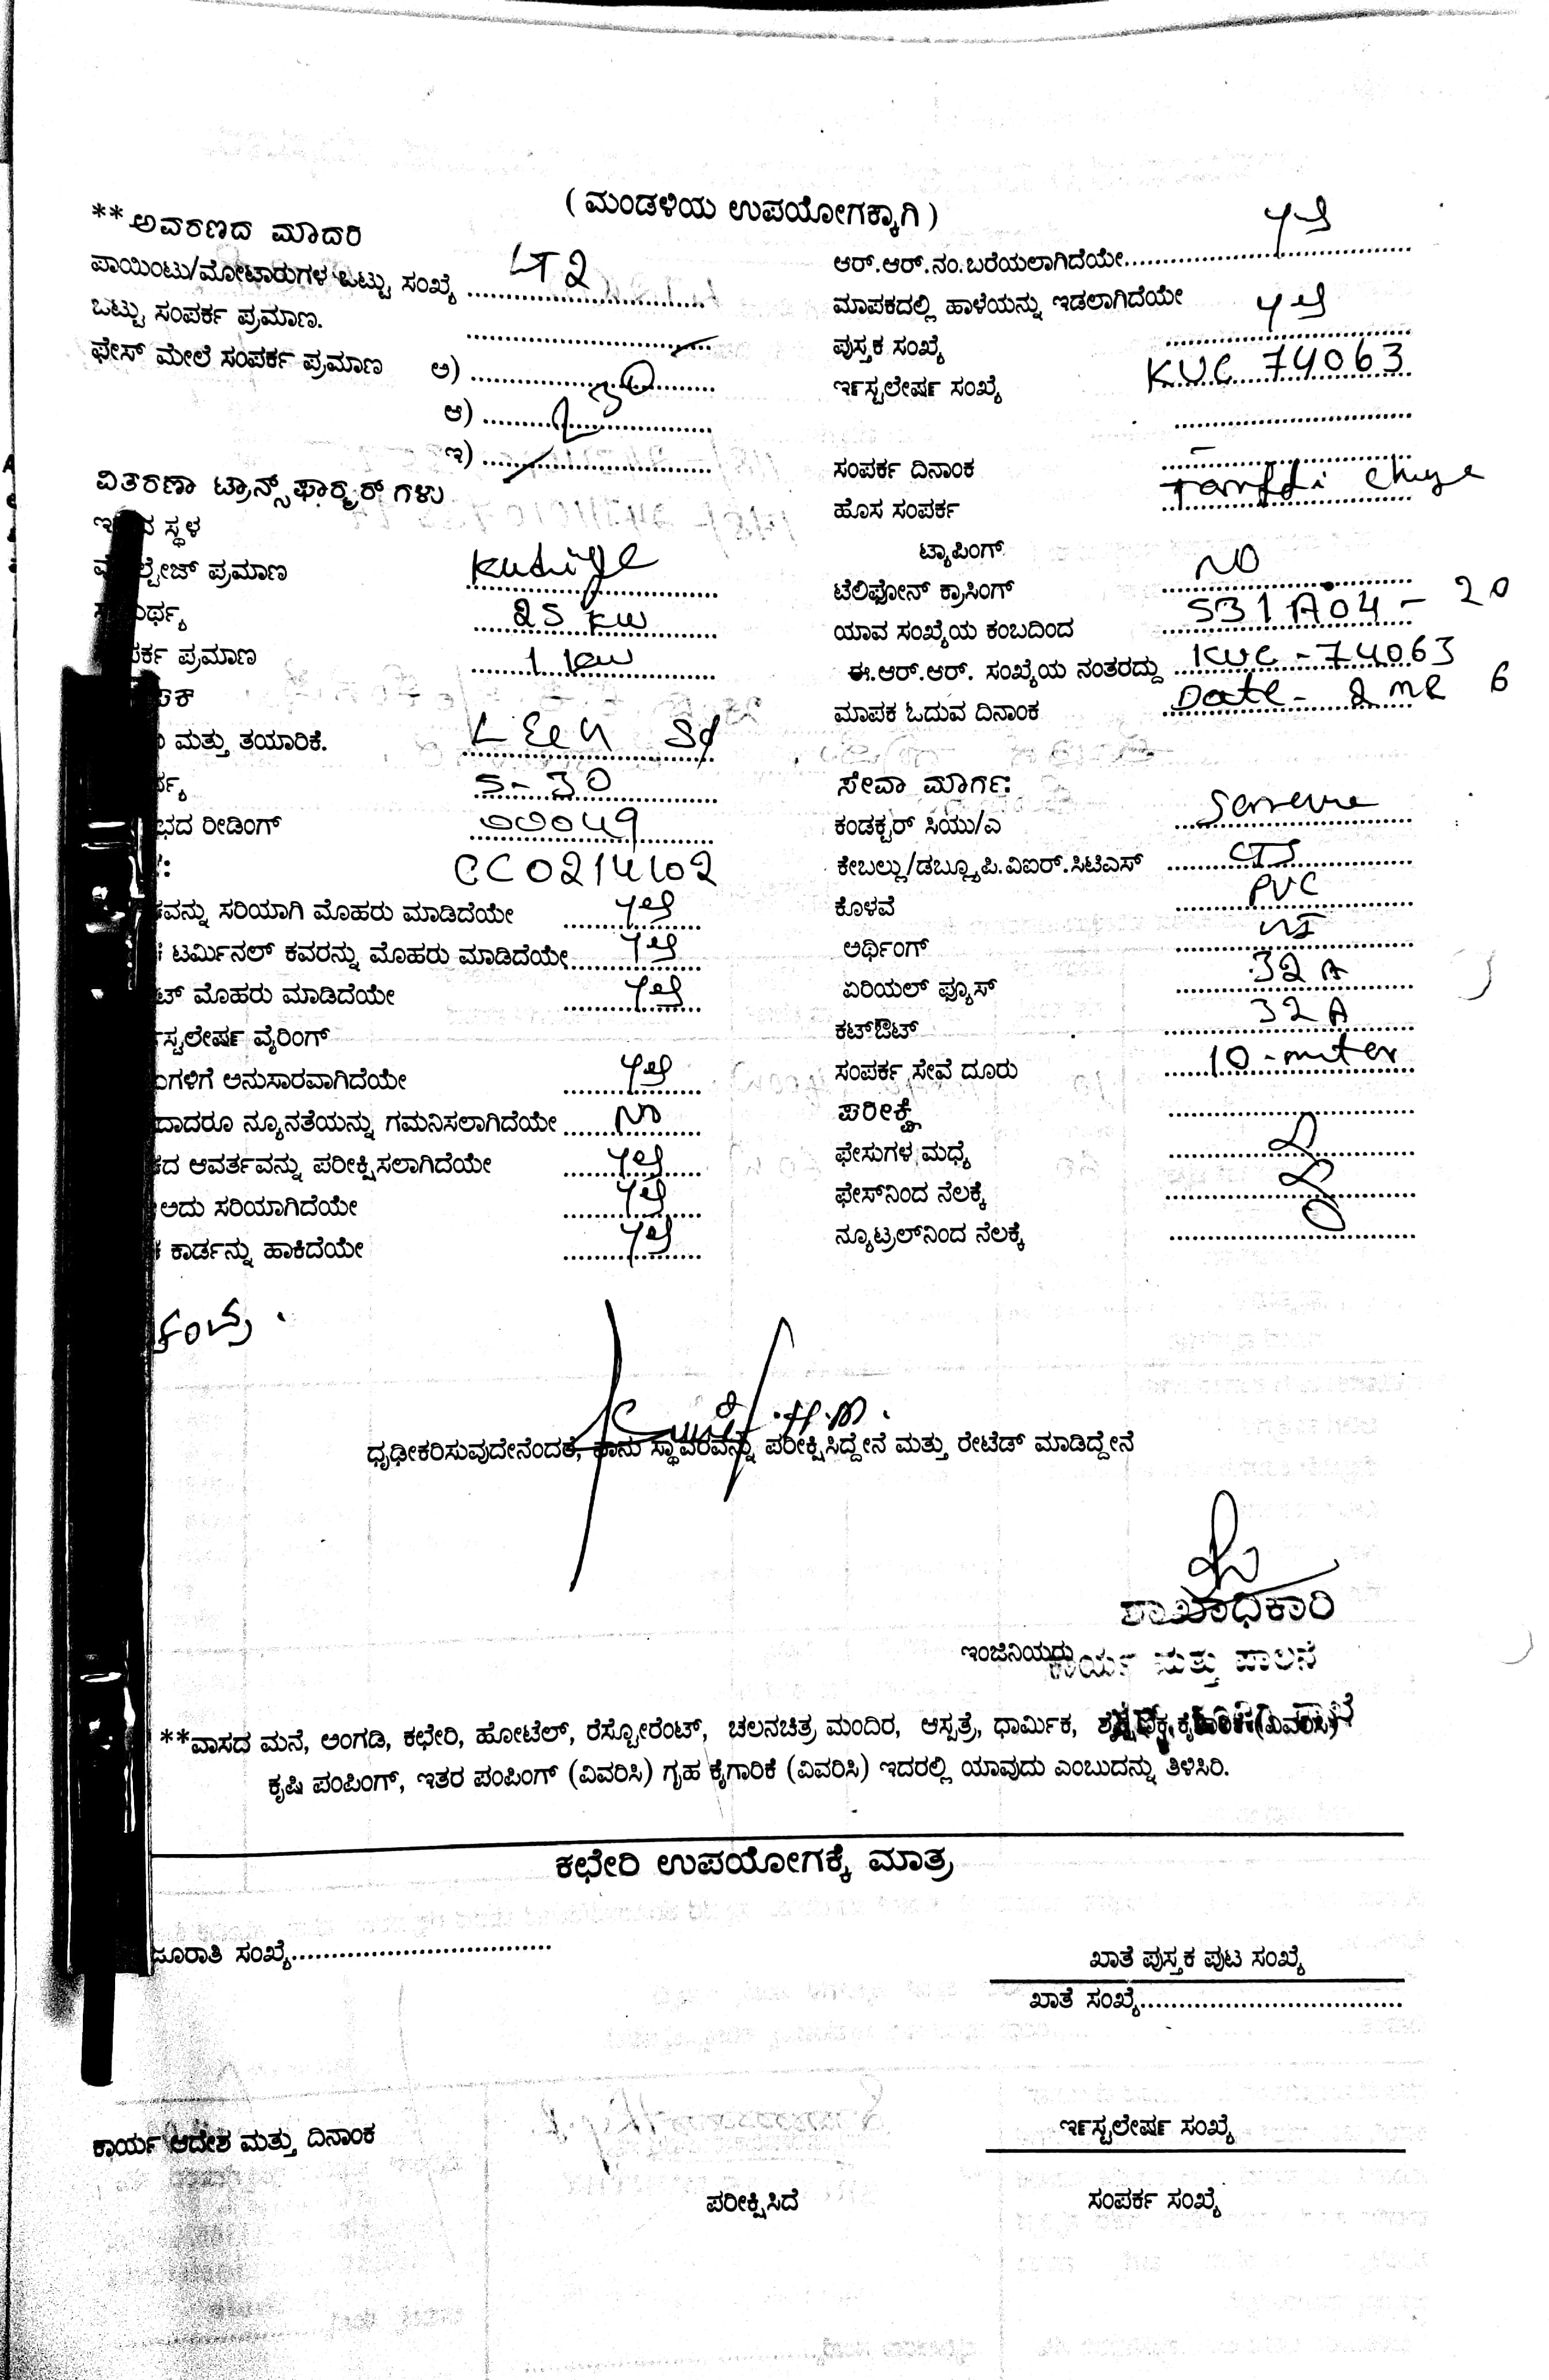 ( ಮಂಡಳಿಯ ಉಪಯೋಗಕ್ಕಾಗಿ )
**ಅವರಣದ ಮಾದರಿ
ಪಾಯಿಂಟು/ಮೋಟಾರುಗಳ ಒಟ್ಟು ಸಂಖ್ಯೆ LT 2
ಒಟ್ಟು ಸಂಪರ್ಕ ಪ್ರಮಾಣ.
ಫೇಸ್ ಮೇಲೆ ಸಂಪರ್ಕ ಪ್ರಮಾಣ ಅ)
ಆ)
ಇ)
ವಿತರಣಾ ಟ್ರಾನ್ಸ್‌ಫಾರ್ಮರ್ ಗಳು
ಸ್ಥಳ
ಪ್ರಮಾಣ Kudige
25 KW
ಪ್ರಮಾಣ 1 KW
ಮತ್ತು ತಯಾರಿಕೆ.
5-30
ರೀಡಿಂಗ್ 00049
CC0214102
ಸರಿಯಾಗಿ ಮೊಹರು ಮಾಡಿದೆಯೇ yes
ಟರ್ಮಿನಲ್ ಕವರನ್ನು ಮೊಹರು ಮಾಡಿದೆಯೇ yes
ಮೊಹರು ಮಾಡಿದೆಯೇ yes
ವೈರಿಂಗ್
ಅನುಸಾರವಾಗಿದೆಯೇ yes
ನ್ಯೂನತೆಯನ್ನು ಗಮನಿಸಲಾಗಿದೆಯೇ No
ಆವರ್ತವನ್ನು ಪರೀಕ್ಷಿಸಲಾಗಿದೆಯೇ yes
ಅದು ಸರಿಯಾಗಿದೆಯೇ yes
ಕಾರ್ಡನ್ನು ಹಾಕಿದೆಯೇ yes
ಆರ್.ಆರ್.ನಂ.ಬರೆಯಲಾಗಿದೆಯೇ yes
ಮಾಪಕದಲ್ಲಿ ಹಾಳೆಯನ್ನು ಇಡಲಾಗಿದೆಯೇ yes
ಪುಸ್ತಕ ಸಂಖ್ಯೆ
ಇನ್‌ಸ್ಟಲೇಷನ್ ಸಂಖ್ಯೆ KUC 74063
ಸಂಪರ್ಕ ದಿನಾಂಕ
ಹೊಸ ಸಂಪರ್ಕ
ಟ್ಯಾಪಿಂಗ್
ಟೆಲಿಫೋನ್ ಕ್ರಾಸಿಂಗ್ NO
ಯಾವ ಸಂಖ್ಯೆಯ ಕಂಬದಿಂದ 531A04 - 20
ಈ.ಆರ್.ಆರ್. ಸಂಖ್ಯೆಯ ನಂತರದ್ದು KUC - 74063
ಮಾಪಕ ಓದುವ ದಿನಾಂಕ Date - 2 MR 6
ಸೇವಾ ಮಾರ್ಗ:
ಕಂಡಕ್ಟರ್ ಸಿಯು/ಎ
ಕೇಬಲ್ಲು/ಡಬ್ಲ್ಯೂಪಿ.ವಿಐರ್.ಸಿಟಿಎಸ್ CTS
ಕೊಳವೆ PVC
ಅರ್ಥಿಂಗ್
ಏರಿಯಲ್ ಫ್ಯೂಸ್ 32 A
ಕಟ್‌ಔಟ್ 32 A
ಸಂಪರ್ಕ ಸೇವೆ ದೂರು 10 - miter
ಪರೀಕ್ಷೆ
ಫೇಸುಗಳ ಮಧ್ಯೆ
ಫೇಸ್‌ನಿಂದ ನೆಲಕ್ಕೆ
ನ್ಯೂಟ್ರಲ್‌ನಿಂದ ನೆಲಕ್ಕೆ
ಧೃಢೀಕರಿಸುವುದೇನೆಂದರೆ, ನಾನು ಸ್ಥಾವರವನ್ನು ಪರೀಕ್ಷಿಸಿದ್ದೇನೆ ಮತ್ತು ರೇಟೆಡ್ ಮಾಡಿದ್ದೇನೆ
ಶಾಖಾಧಿಕಾರಿ
ಇಂಜಿನಿಯರು
ಕಾರ್ಯ ಮತ್ತು ಪಾಲನೆ
**ವಾಸದ ಮನೆ, ಅಂಗಡಿ, ಕಛೇರಿ, ಹೋಟೆಲ್, ರೆಸ್ಟೋರೆಂಟ್, ಚಲನಚಿತ್ರ ಮಂದಿರ, ಆಸ್ಪತ್ರೆ, ಧಾರ್ಮಿಕ, (ವಿವರಿಸಿ)
ಕೃಷಿ ಪಂಪಿಂಗ್, ಇತರ ಪಂಪಿಂಗ್ (ವಿವರಿಸಿ) ಗೃಹ ಕೈಗಾರಿಕೆ (ವಿವರಿಸಿ) ಇದರಲ್ಲಿ ಯಾವುದು ಎಂಬುದನ್ನು ತಿಳಿಸಿರಿ.
ಕಛೇರಿ ಉಪಯೋಗಕ್ಕೆ ಮಾತ್ರ
ಜೂರಾತಿ ಸಂಖ್ಯೆ
ಖಾತೆ ಪುಸ್ತಕ ಪುಟ ಸಂಖ್ಯೆ
ಖಾತೆ ಸಂಖ್ಯೆ
ಕಾರ್ಯ ಆದೇಶ ಮತ್ತು ದಿನಾಂಕ
ಇನ್‌ಸ್ಟಲೇಷನ್ ಸಂಖ್ಯೆ
ಪರೀಕ್ಷಿಸಿದೆ
ಸಂಪರ್ಕ ಸಂಖ್ಯೆ